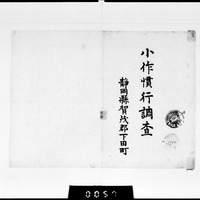 小作慣行調査
静岡縣賀茂郡下田町
0057